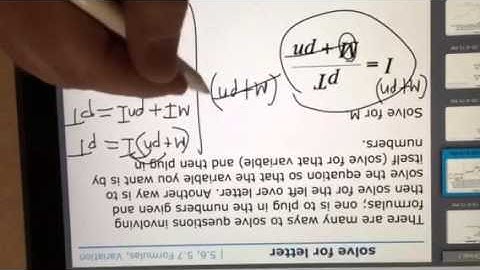 solve for letter | 5.6, 5.7 Formulas, Variation
There are many ways to solve questions involving
formulas; one is to plug in the numbers given and
then solve for the left over letter. Another way is to
solve the equation so that the variable you want is by
itself (solve for that variable) and then plug in
numbers.
Solve for M
(M+pn) I = pT / M + pn (M+pn)
(M+pn)I = pT
MI + pnI = pT